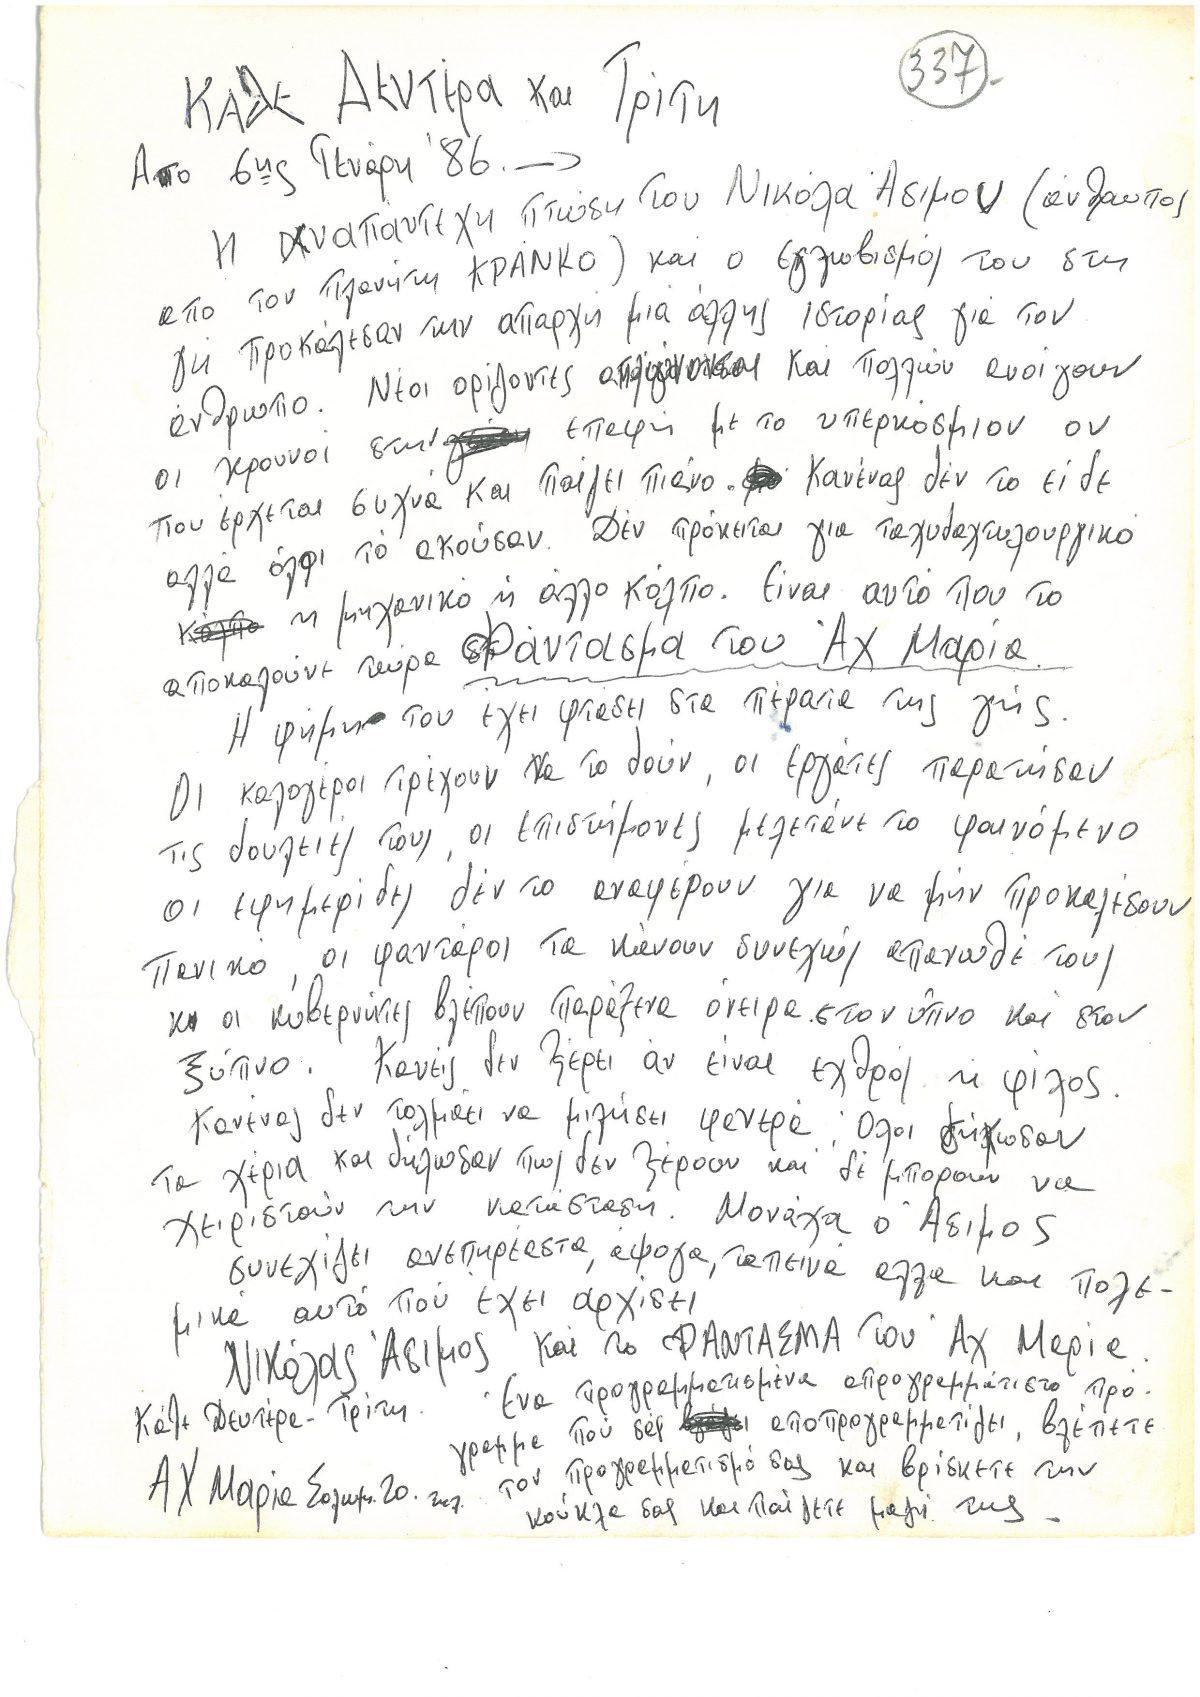 337
Κάθε Δευτέρα και Τρίτη
Απο 6ης Γενάρη '86.
Η αναπαντεχη πτώση του Νικόλα Άσιμου (άνθρωπος
απο τον πλανήτη ΚΡΑΝΚΟ) και ο εγκλωβισμός του στη
γη προκάλεσαν την απαρχή μιά άλλης ιστορίας γιά τον
άνθρωπο. Νέοι ορίζοντες και πολλών ανοίγουν
οι κρουνοί στην επαφή με το υπερκόσμιον ον
που έρχεται συχνά και παίζει πιάνο. Κανένας δέν το είδε
αλλά όλοι τό ακούσαν. Δέν πρόκειται για ταχυδαχτυλουργικό
ή μηχανικό ή άλλο κόλπο. Είναι αυτό που το
αποκαλούνε τώρα Φάντασμα του Άχ Μαρία.
Η φήμη του έχει φτάσει στα πέρατα της γής.
Οι καλογέροι τρέχουν να το δούν, οι εργάτες παρατήσαν
τις δουλειές τους, οι επιστήμονες μελετάνε το φαινόμενο
οι εφημερίδες δέν το αναφέρουν για να μήν προκαλέσουν
πανικό, οι φαντάροι τα κάνουν συνεχώς απανωθέ τους
κι οι κυβερνήτες βλέπουν παράξενα όνειρα στον ύπνο και στον
ξύπνο. Κανείς δεν ξέρει άν είναι εχθρός ή φίλος.
Κανένας δεν τολμάει να μιλήσει φανερά, Όλοι σηκώσαν
τα χέρια και δήλωσαν πως δεν ξέρουν και δέ μπορούν να
χειριστούν την κατάσταση. Μονάχα ο Άσιμος
συνεχίζει ανεπηρέαστα, άψογα, ταπεινά αλλα και πολε-
μικά αυτό πού έχει αρχίσει
Νικόλας Άσιμος και το ΦΑΝΤΑΣΜΑ του Άχ Μαρία.
Κάθε Δευτέρα - Τρίτη. Ένα προγραμματισμένα απρογραμμάτιστο πρό-
γραμμα πού σάς αποπρογραμματίζει, βλέπετε
ΑΧ Μαρία Σολωμ. 20. τηλ. τον προγραμματισμό σας και βρίσκετε την
κούκλα σας και παίζετε μαζί της -